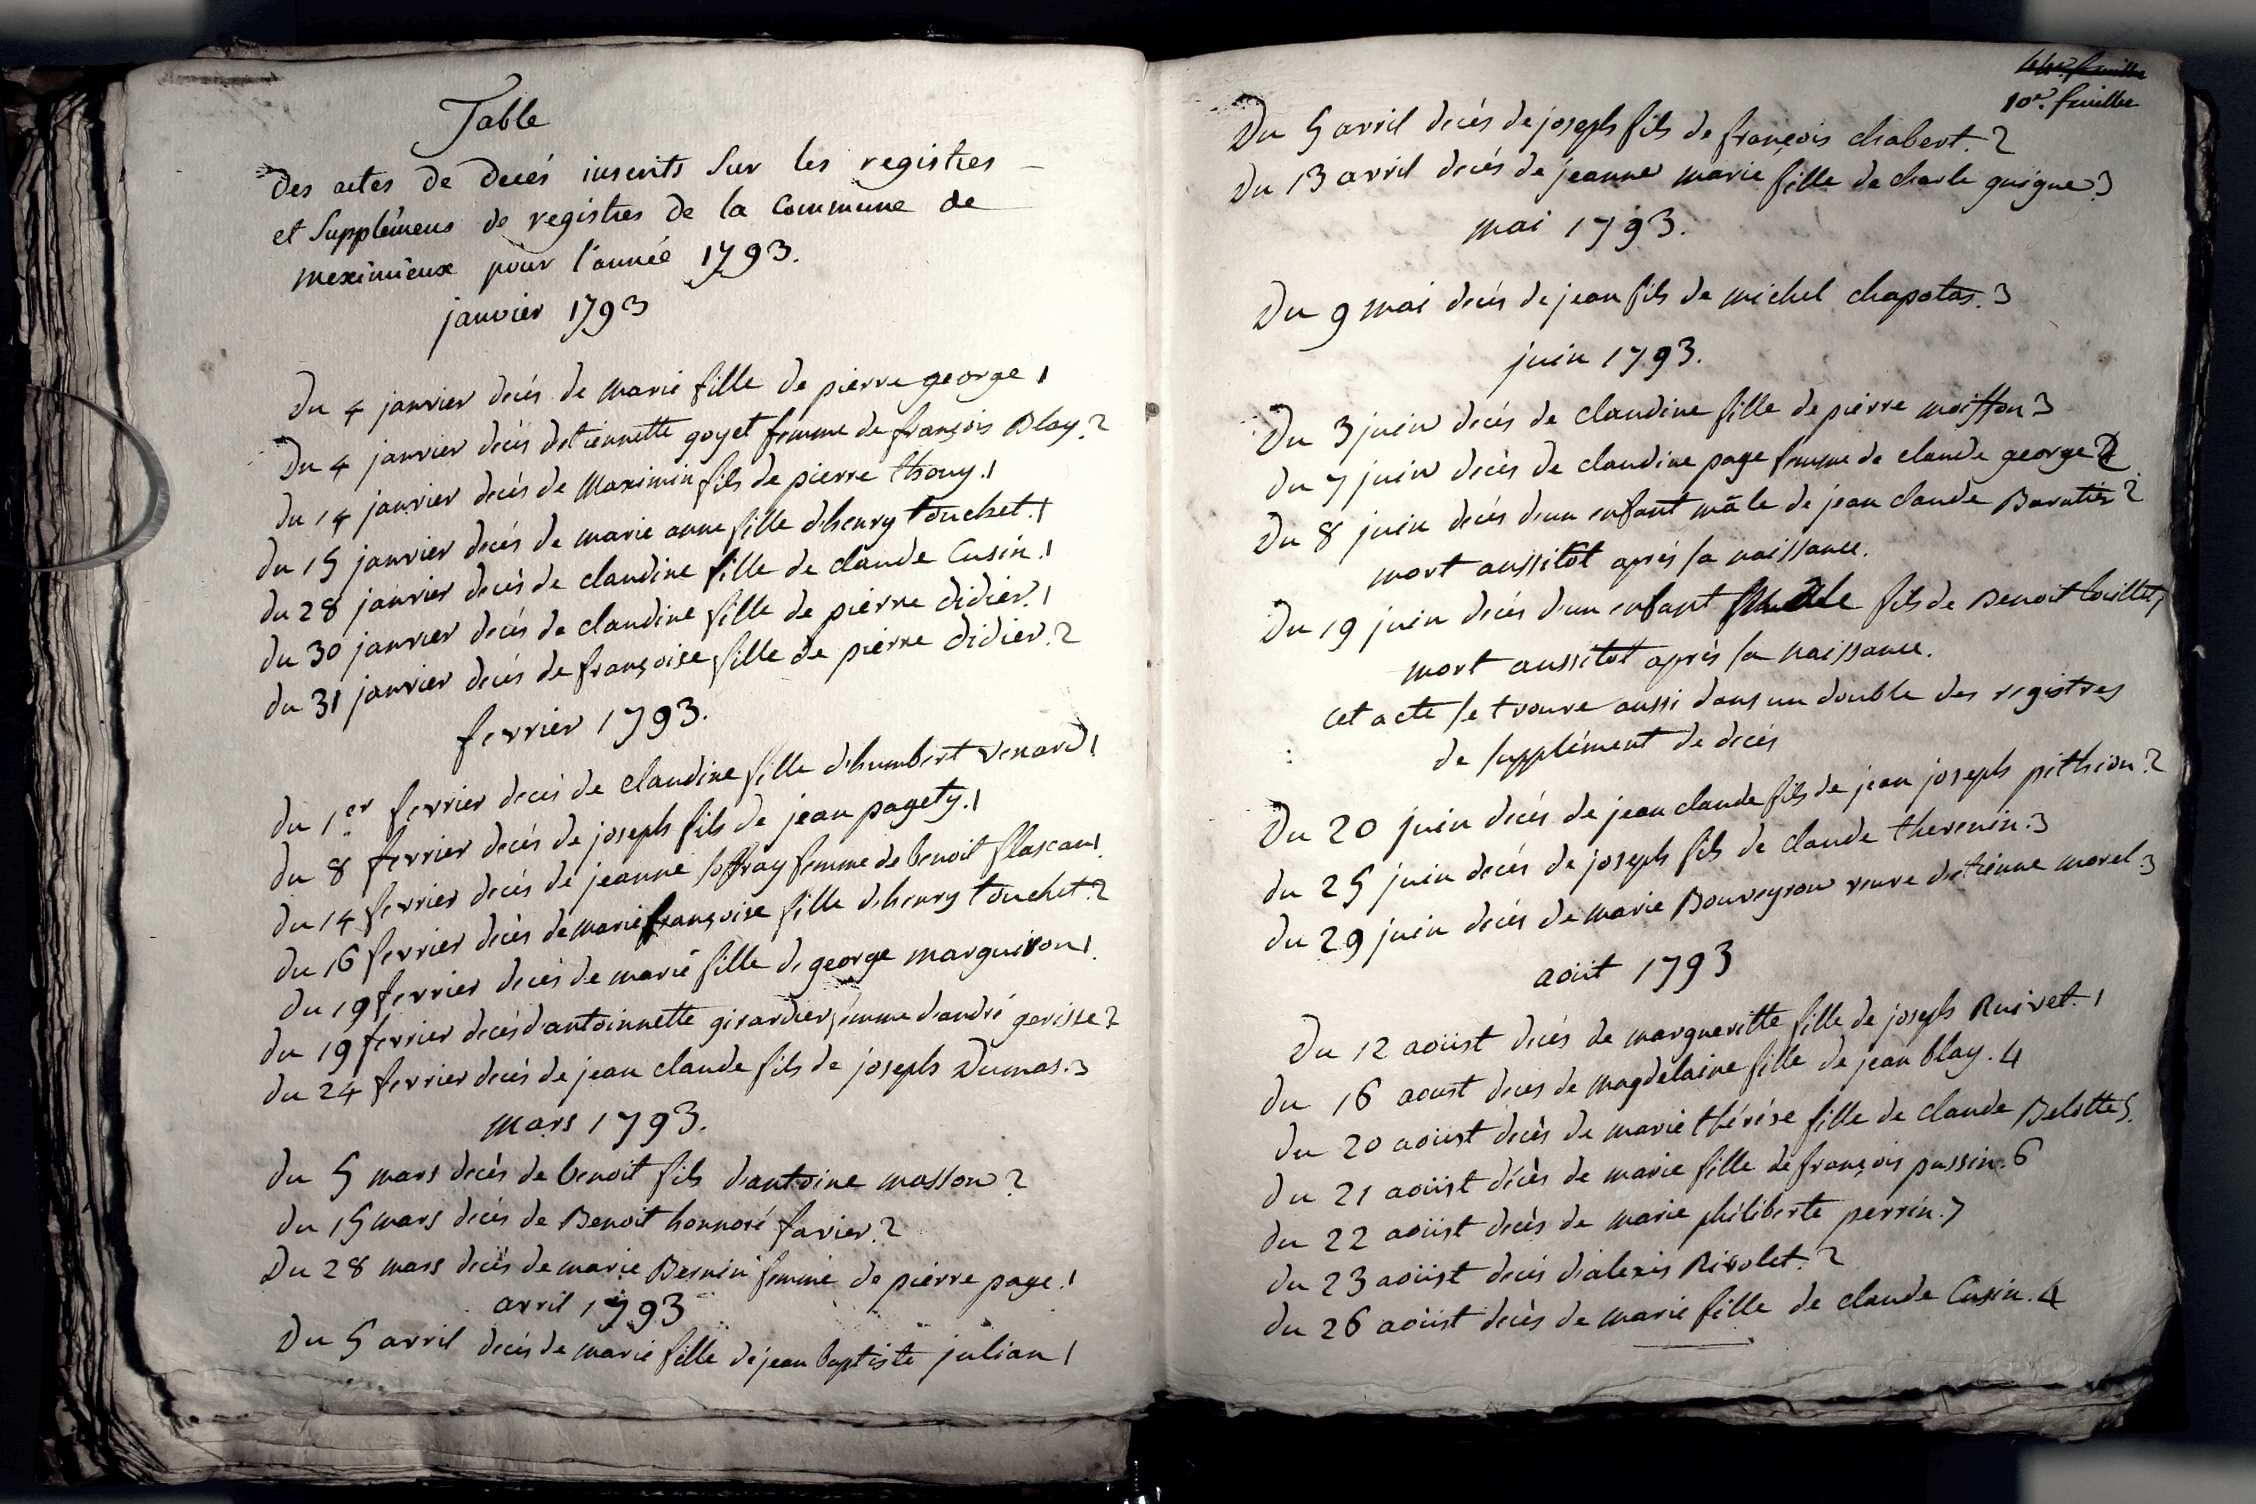 Table
des actes de decés inscrits sur les registres
et supplémens de registres de la commune de
meximieux pour l'année 1793.
janvier 1793
du 4 janvier decés de marie fille de pierre george 1
Du 4 janvier decés detiennette goyet femme de françois Blay. 2
du 14 janvier decés de Maximin fils de pierre thony. 1
du 15 janvier decés de marie anne fille dhenry touchet. 1
du 28 janvier decés de claudine fille de claude Cusin. 1
du 30 janvier decés de claudine fille de pierre didier. 1
du 31 janvier decés de françoise fille de pierre didier. 2
fevrier 1793.
du 1er fevrier decés de claudine fille dhumbert venard 1
du 8 fevrier decés de joseph fils de jean pagety. 1
du 14 fevrier decés de jeanne joffray femme de benoit flascan 1.
du 16 fevrier decés de marie françoise fille dhenry touchet. 2
du 19 fevrier decés de marie fille de george marguiron 1.
du 19 fevrier decés dantoinnette girardier femme dandré gerisse 2
du 24 fevrier decés de jean claude fils de joseph Dumas. 3
mars 1793.
du 5 mars decés de benoit fils dantoine masson 2
du 15 mars decés de Benoit honnoré favier. 2
Du 28 mars decés de marie Bernin femme de pierre page. 1
avril 1793
Du 5 avril decés de marie fille de jean baptiste julian 1
10e. feuillet
Du 5 avril decés de joseph fils de françois chabert. 2
Du 13 avril decés de jeanne marie fille de charle guigue. 3
mai 1793.
Du 9 mai decés de jean fils de michel chapotas. 3
juin 1793.
Du 3 juin decés de claudine fille de pierre moiffon 3
du 7 juin decés de claudine page femme de claude george 2
Du 8 juin decés dun enfant mâle de jean claude Baratier 2
mort aussitôt aprés sa naissance.
Du 19 juin decés dun enfant fils de Benoit touillet,
mort aussitot aprés sa naissance.
cet acte se trouve aussi dans un double des registres
de supplément de decés
Du 20 juin decés de jean claude fils de jean joseph pithion. 2
du 25 juin decés de joseph fils de claude thevenin. 3
du 29 juin decés de marie Bouveyron veuve detienne morel. 3
août 1793
Du 12 aoüst decés de margueritte fille de joseph Ruivet. 1
du 16 aoust decés de magdelaine fille de jean blay. 4
du 20 aoüst decés de marie thérése fille de claude Belotte 5.
du 21 aoüst décès de marie fille de françois passin. 6
du 22 aoüst decès de marie philiberte perrin. 7
du 23 aoüst decés dalexis Rivolet. 2
du 26 aoüst decés de marie fille de claude Cusin. 4